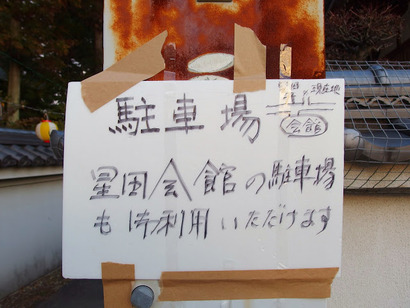 駐車場
現在地
会館
星田会館の駐車場
も御利用いただけます